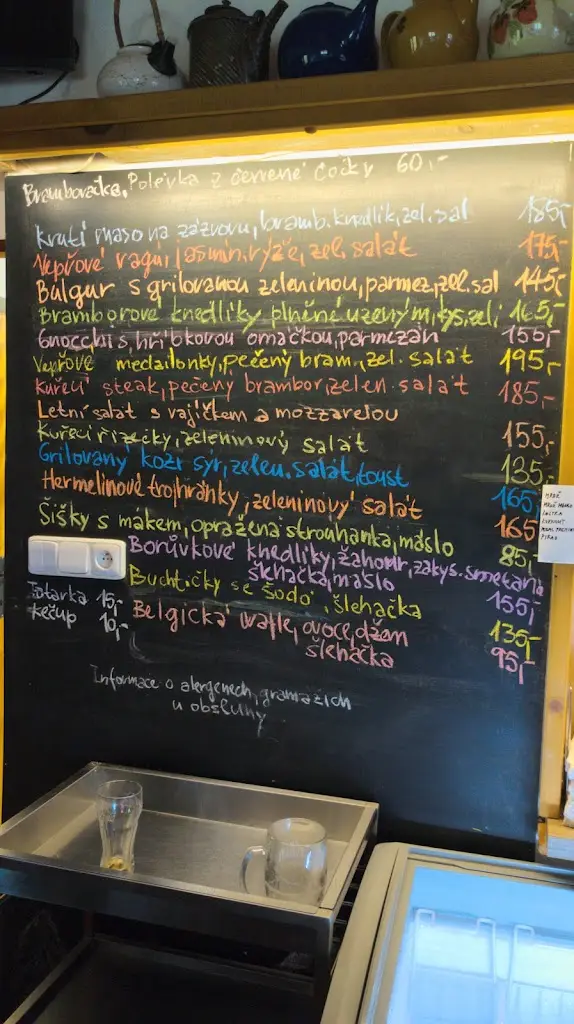 Bramboračka, Polévka z červené čočky 60,-
Krůtí maso na zázvoru, bramb. knedlík, zel. sal 185,-
Vepřové ragú, jasmín. rýže, zel. salát 175,-
Bulgur s grilovanou zeleninou, parmez, zel. sal 145,-
Bramborové knedlíky plněné uzeným, kys. zelí 165,-
Gnocchi s hříbkovou omáčkou, parmezán 155,-
Vepřové medailonky, pečený bram., zel. salát 195,-
Kuřecí steak, pečený brambor, zelen. salát 185,-
Letní salát s vajíčkem a mozzarelou 155,-
Kuřecí řízečky, zeleninový salát 135,-
Grilovaný kozí sýr, zelen. salát, toust 165,-
Hermelínové trojhránky, zeleninový salát 165
Šišky s mákem, opražená strouhanka, máslo 85,-
Borůvkové knedlíky, žahour, zakys. smetana
šlehačka, máslo 155,-
Buchtičky se šodó, šlehačka 135,-
Tatarka 15,-
kečup 10,-
Belgická wafle, ovoce, džem
šlehačka 95,-
Informace o alergenech, gramážích
u obsluhy